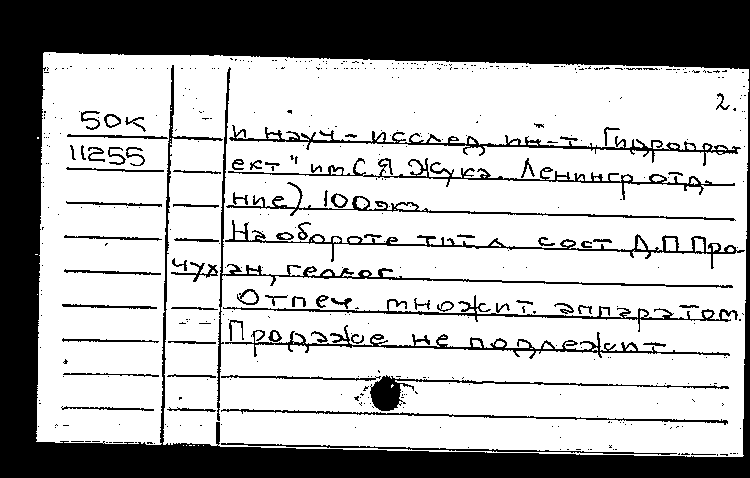 2.
50К
и науч-исслед. ин-т „Гидропро-
11255
ект" им. С.Я. Жука. Ленингр. отд-
ние). 100 экз.
На обороте тит. л. сост. Д.П. Про-
чухан, геолог.
Отпеч. множит. аппаратом.
Продаже не подлежит.